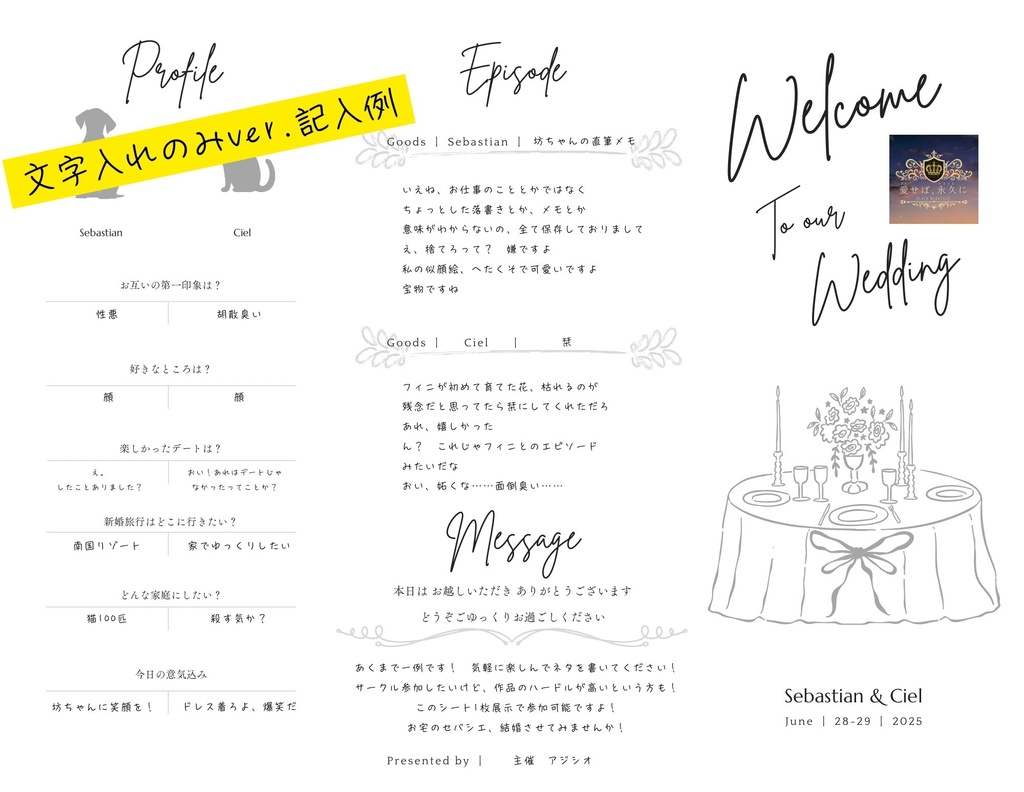 Profile
文字入れのみver.記入例
Sebastian Ciel
お互いの第一印象は？
性悪 胡散臭い
好きなところは？
顔 顔
楽しかったデートは？
え。 おい！あれはデートじゃ
したことありました？ なかったってことか？
新婚旅行はどこに行きたい？
南国リゾート 家でゆっくりしたい
どんな家庭にしたい？
猫100匹 殺す気か？
今日の意気込み
坊ちゃんに笑顔を！ ドレス着ろよ、爆笑だ
Episode
Goods | Sebastian | 坊ちゃんの直筆メモ
いえね、お仕事のこととかではなく
ちょっとした落書きとか、メモとか
意味がわからないの、全て保存しておりまして
え、捨てろって？　嫌ですよ
私の似顔絵、へたくそで可愛いですよ
宝物ですね
Goods | Ciel | 栞
フィニが初めて育てた花、枯れるのが
残念だと思ってたら栞にしてくれただろ
あれ、嬉しかった
ん？　これじゃフィニとのエピソード
みたいだな
おい、妬くな……面倒臭い……
Message
本日は お越しいただき ありがとうございます
どうぞごゆっくりお過ごしください
あくまで一例です！　気軽に楽しんでネタを書いてください！
サークル参加したいけど、作品のハードルが高いという方も！
このシート1枚展示で参加可能ですよ！
お宅のセバシエ、結婚させてみませんか！
Presented by |　主催　アジシオ
Welcome
To our
Wedding
愛せば、永久に
Sebastian & Ciel
June | 28-29 | 2025